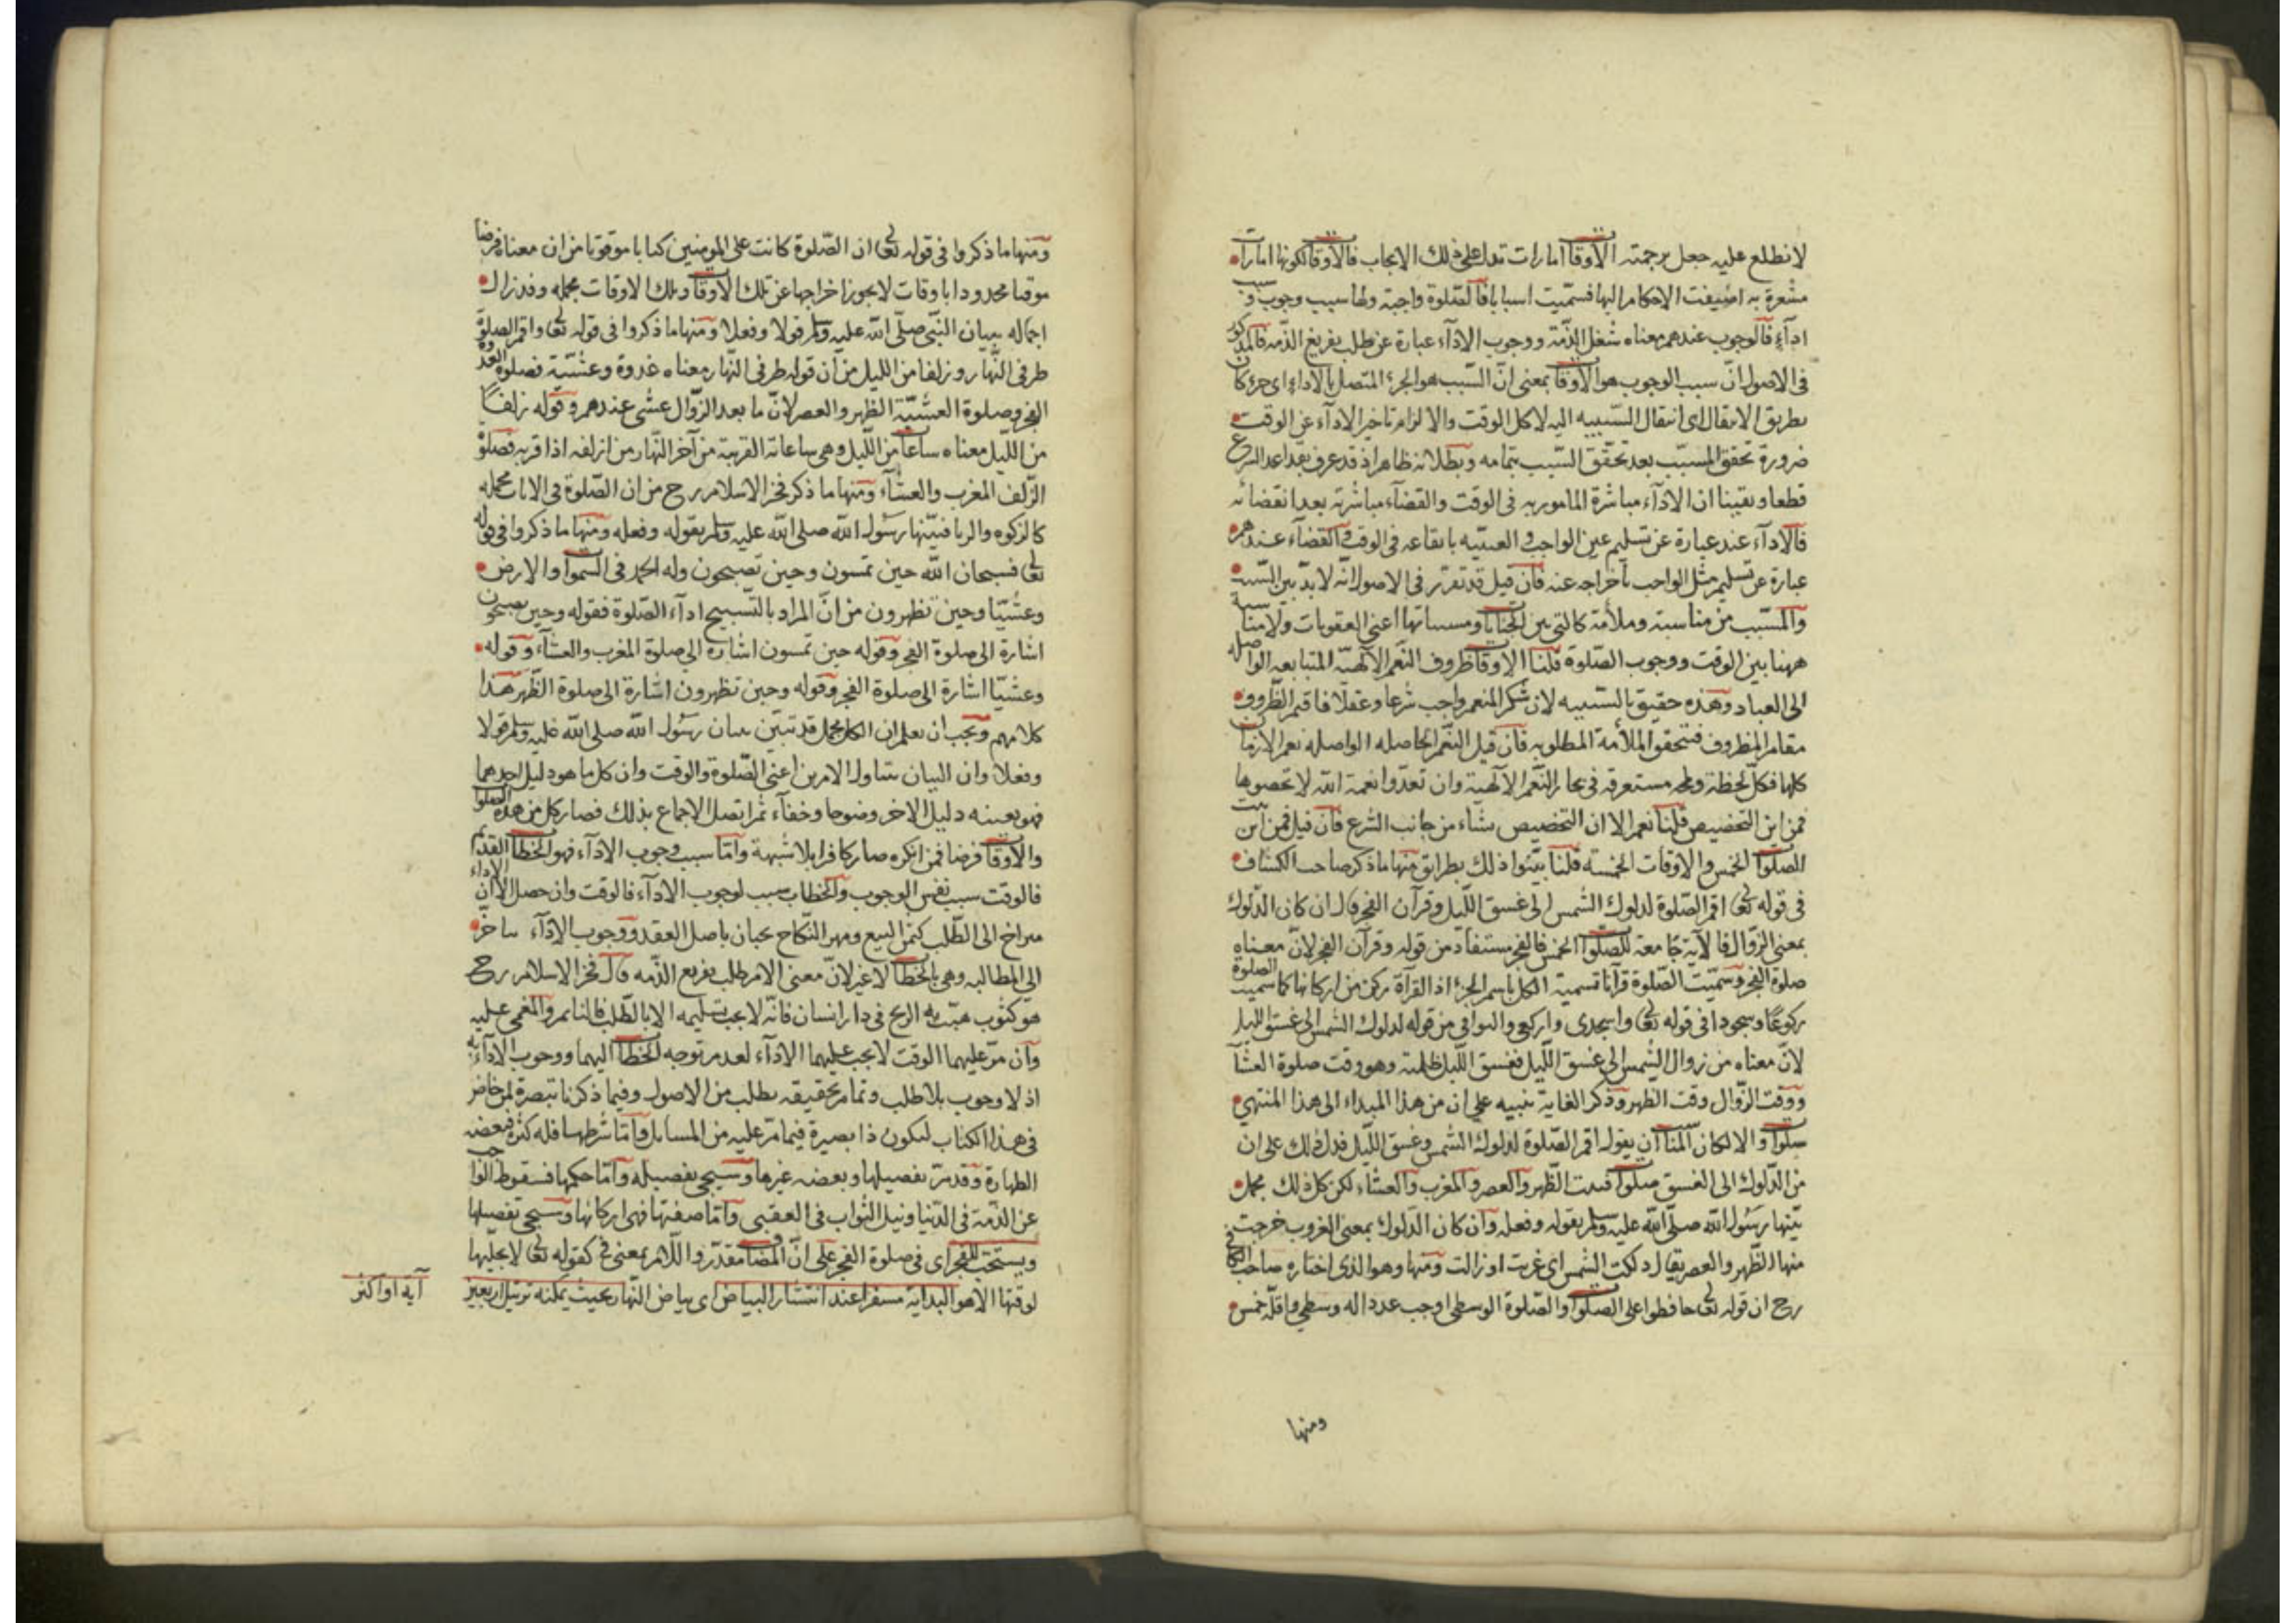 لا نطلع عليه جعل برحمته الأوقات امارات تدل على ذلك الايجاب فالأوقات لكونها امارات
مشعرة به اضيفت الاحكام اليها فسميت اسبابا فالصلوة واجبة ولها سبب وجوب وسبب
اداء فالوجوب عندهم معناه شغل الذمة ووجوب الاداء عبارة عن طلب تفريغ الذمة فالمذكور
في الاصول ان سبب الوجوب هو الأوقات بمعنى ان السبب هو الجزء المتصل بالاداء اى جزء كان
بطريق الانتقال اى انتقال السببيه اليه لا كل الوقت والا لزم تاخير الاداء عن الوقت
ضرورة تحقق المسبب بعد تحقق السبب بتمامه وبطلانه ظاهر اذ قد عرف بقواعد الشرع
قطعا ويقينا ان الاداء مباشرة المامور به في الوقت والقضاء مباشرته بعد انقضائه
فالاداء عند عبارة عن تسليم عين الواجب بايقاعه في الوقت والقضاء عندهم
عبارة عن تسليم مثل الواجب باخراجه عنه فان قيل قد تقرر في الاصول انه لا بد بين السبب
والمسبب من مناسبة وملأمة كالتى بين الجنايات ومسبباتها اعنى العقوبات ولا مناسبة
ههنا بين الوقت ووجوب الصلوة قلنا الاوقات ظروف النعم الالهية المتتابعه الواصله
الى العباد وهذه حقيق بالسببيه لان شكر المنعم واجب شرعا وعقلا فاقيم الظروف
مقام المظروف فتتحقق الملأمة المطلوبه فان قيل النعم الحاصله الواصله نعم الازمان
كلها فكل لحظة ولمحه مستغرقه في بحار النعم الالهية وان تعدوا نعمة الله لا تحصوها
فمن اين التخصيص قلنا نعم الا ان التخصيص شاء من جانب الشرع فان قيل فمن اين ثبت
الصلوات الخمس والاوقات الخمسه قلنا بينوا ذلك بطرائق منها ما ذكر صاحب الكشاف
في قوله تعالى اقم الصلوة لدلوك الشمس الى غسق الليل وقرآن الفجر قال ان كان الدلوك
بمعنى الزوال فالآية جامعة للصلوات الخمس فالفجر مستفاد من قوله وقرآن الفجر لان معناه
صلوة الفجر وسميت الصلوة قرآنا تسمية الكل باسم الجزء اذ القرآة ركن من اركانها كما سميت الصلوة
ركوعا وسجودا في قوله تعالى واسجدى واركعى والبواقى من قوله لدلوك الشمس الى غسق الليل
لان معناه من زوال الشمس الى غسق الليل فغسق الليل ظلمته وهو وقت صلوة العشآ
ووقت الزوال وقت الظهر وذكر الغاية تنبيه على ان من هذا المبداء الى هذا المنتهى
صلوات والا لكان المناسب ان يقول اقم الصلوة لدلوك الشمس وغسق الليل فدل ذلك على ان
من الدلوك الى الغسق صلوات فثبت الظهر والعصر والمغرب والعشاء لكن كل ذلك مجمل
بينها رسول الله صلى الله عليه وسلم بقوله وفعله وان كان الدلوك بمعنى الغروب خرجت
منها الظهر والعصر يقال دلكت الشمس اى غربت او زالت ومنها وهو الذى اختاره صاحب الكافي
رح ان قوله تعالى حافظوا على الصلوات والصلوة الوسطى اوجب عددا له وسطى واقله خمس
ومنها
ومنها ما ذكروا في قوله تعالى ان الصلوة كانت على المومنين كتابا موقوتا من ان معناه فرضا
موقتا محدودا باوقات لا يجوز اخراجها عن تلك الاوقات وتلك الاوقات مجمله وقد زال
اجماله ببيان النبى صلى الله عليه وسلم قولا وفعلا ومنها ما ذكروا في قوله تعالى واقم الصلوة
طرفى النهار وزلفا من الليل من ان قوله طرفى النهار معناه غدوة وعشية فصلوة الغدوة
الفجر وصلوة العشية الظهر والعصر لان ما بعد الزوال عشى عندهم وقوله زلفا
من الليل معناه ساعات من الليل وهى ساعاته القريبة من آخر النهار من ازلفه اذا قربه فصلوة
الزلف المغرب والعشاء ومنها ما ذكر فخر الاسلام رح من ان الصلوة في الايات مجمله
كالزكوه والربا فبينها رسول الله صلى الله عليه وسلم بقوله وفعله ومنها ما ذكروا في قوله
تعالى فسبحان الله حين تمسون وحين تصبحون وله الحمد في السموات والارض
وعشيا وحين تظهرون من ان المراد بالتسبيح اداء الصلوة فقوله وحين تصبحون
اشارة الى صلوة الفجر وقوله حين تمسون اشارة الى صلوة المغرب والعشاء وقوله
وعشيا اشارة الى صلوة الفجر وقوله وحين تظهرون اشارة الى صلوة الظهر هذا
كلامهم ويجب ان يعلم ان الكل مجمل قد تبين ببيان رسول الله صلى الله عليه وسلم قولا
وفعلا وان البيان يتناول الامرين اعنى الصلوة والوقت وان كل ما هو دليل احدهما
فهو بعينه دليل الاخر وضوحا وخفآء ثم اتصل الاجماع بذلك فصار كل من هذه الصلوات
والأوقات فرضا فمن انكره صار كافرا بلا شبهة واما سبب وجوب الاداء فهو الخطاب القديم
فالوقت سبب نفس الوجوب والخطاب سبب لوجوب الاداء فالوقت وان حصل الا ان الاداء
متراخ الى الطلب كثمن البيع ومهر النكاح يجبان باصل العقد ووجوب الاداء يتاخر
الى المطالبه وهى بالخطاب لا غير لان معنى الامر طلب تفريغ الذمه قال فخر الاسلام رح
هو كثوب هبت به الريح في دار انسان فانه لا يجب تسليمه الا بالطلب فالنائم والمغمى عليه
وان مر عليهما الوقت لا يجب عليهما الاداء لعدم توجه الخطاب اليهما ووجوب الاداء به
اذ لا وجوب بلا طلب وتمام تحقيقه يطلب من الاصول وفيما ذكرنا تبصرة لمن خاض
في هذا الكتاب ليكون ذا بصيرة فيما مر عليه من المسايل واما شرطها فله كثرة فبعضه
الطهارة وقد مر تفصيلها وبعضه غيرها وسيجئ تفصيله واما حكمها فسقوط الواجب
عن الذمة في الدنيا ونيل الثواب في العقبى واما صفتها فهى اركانها وسيجئ تفصيلها
ويستحب للفجر اى في صلوة الفجر على ان المضاف مقدر واللام بمعنى في كقوله تعالى لا يجليها
لوقتها الا هو البداية مسفرا عند انتشار البياض اى بياض النهار بحيث يمكنه ترتيل اربعين
آية او اكثر